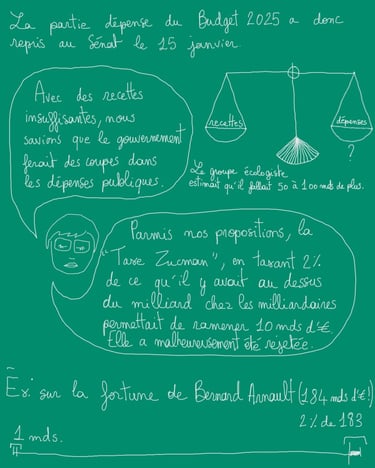 La partie dépense du Budget 2025 a donc
repris au Sénat le 15 janvier.
Avec des recettes
insuffisantes, nous
savions que le gouvernement
ferait des coupes dans
les dépenses publiques.
recettes
dépenses
?
Le groupe écologiste
estimait qu'il fallait 50 à 100 mds de plus.
Parmis nos propositions, la
"Taxe Zucman", en taxant 2%
de ce qu'il y avait au dessus
du milliard chez les milliardaires
permettait de ramener 10 mds d'€.
Elle a malheureusement été rejetée.
Ex: sur la fortune de Bernard Arnault (184 mds d'€!)
2% de 183
1 mds.